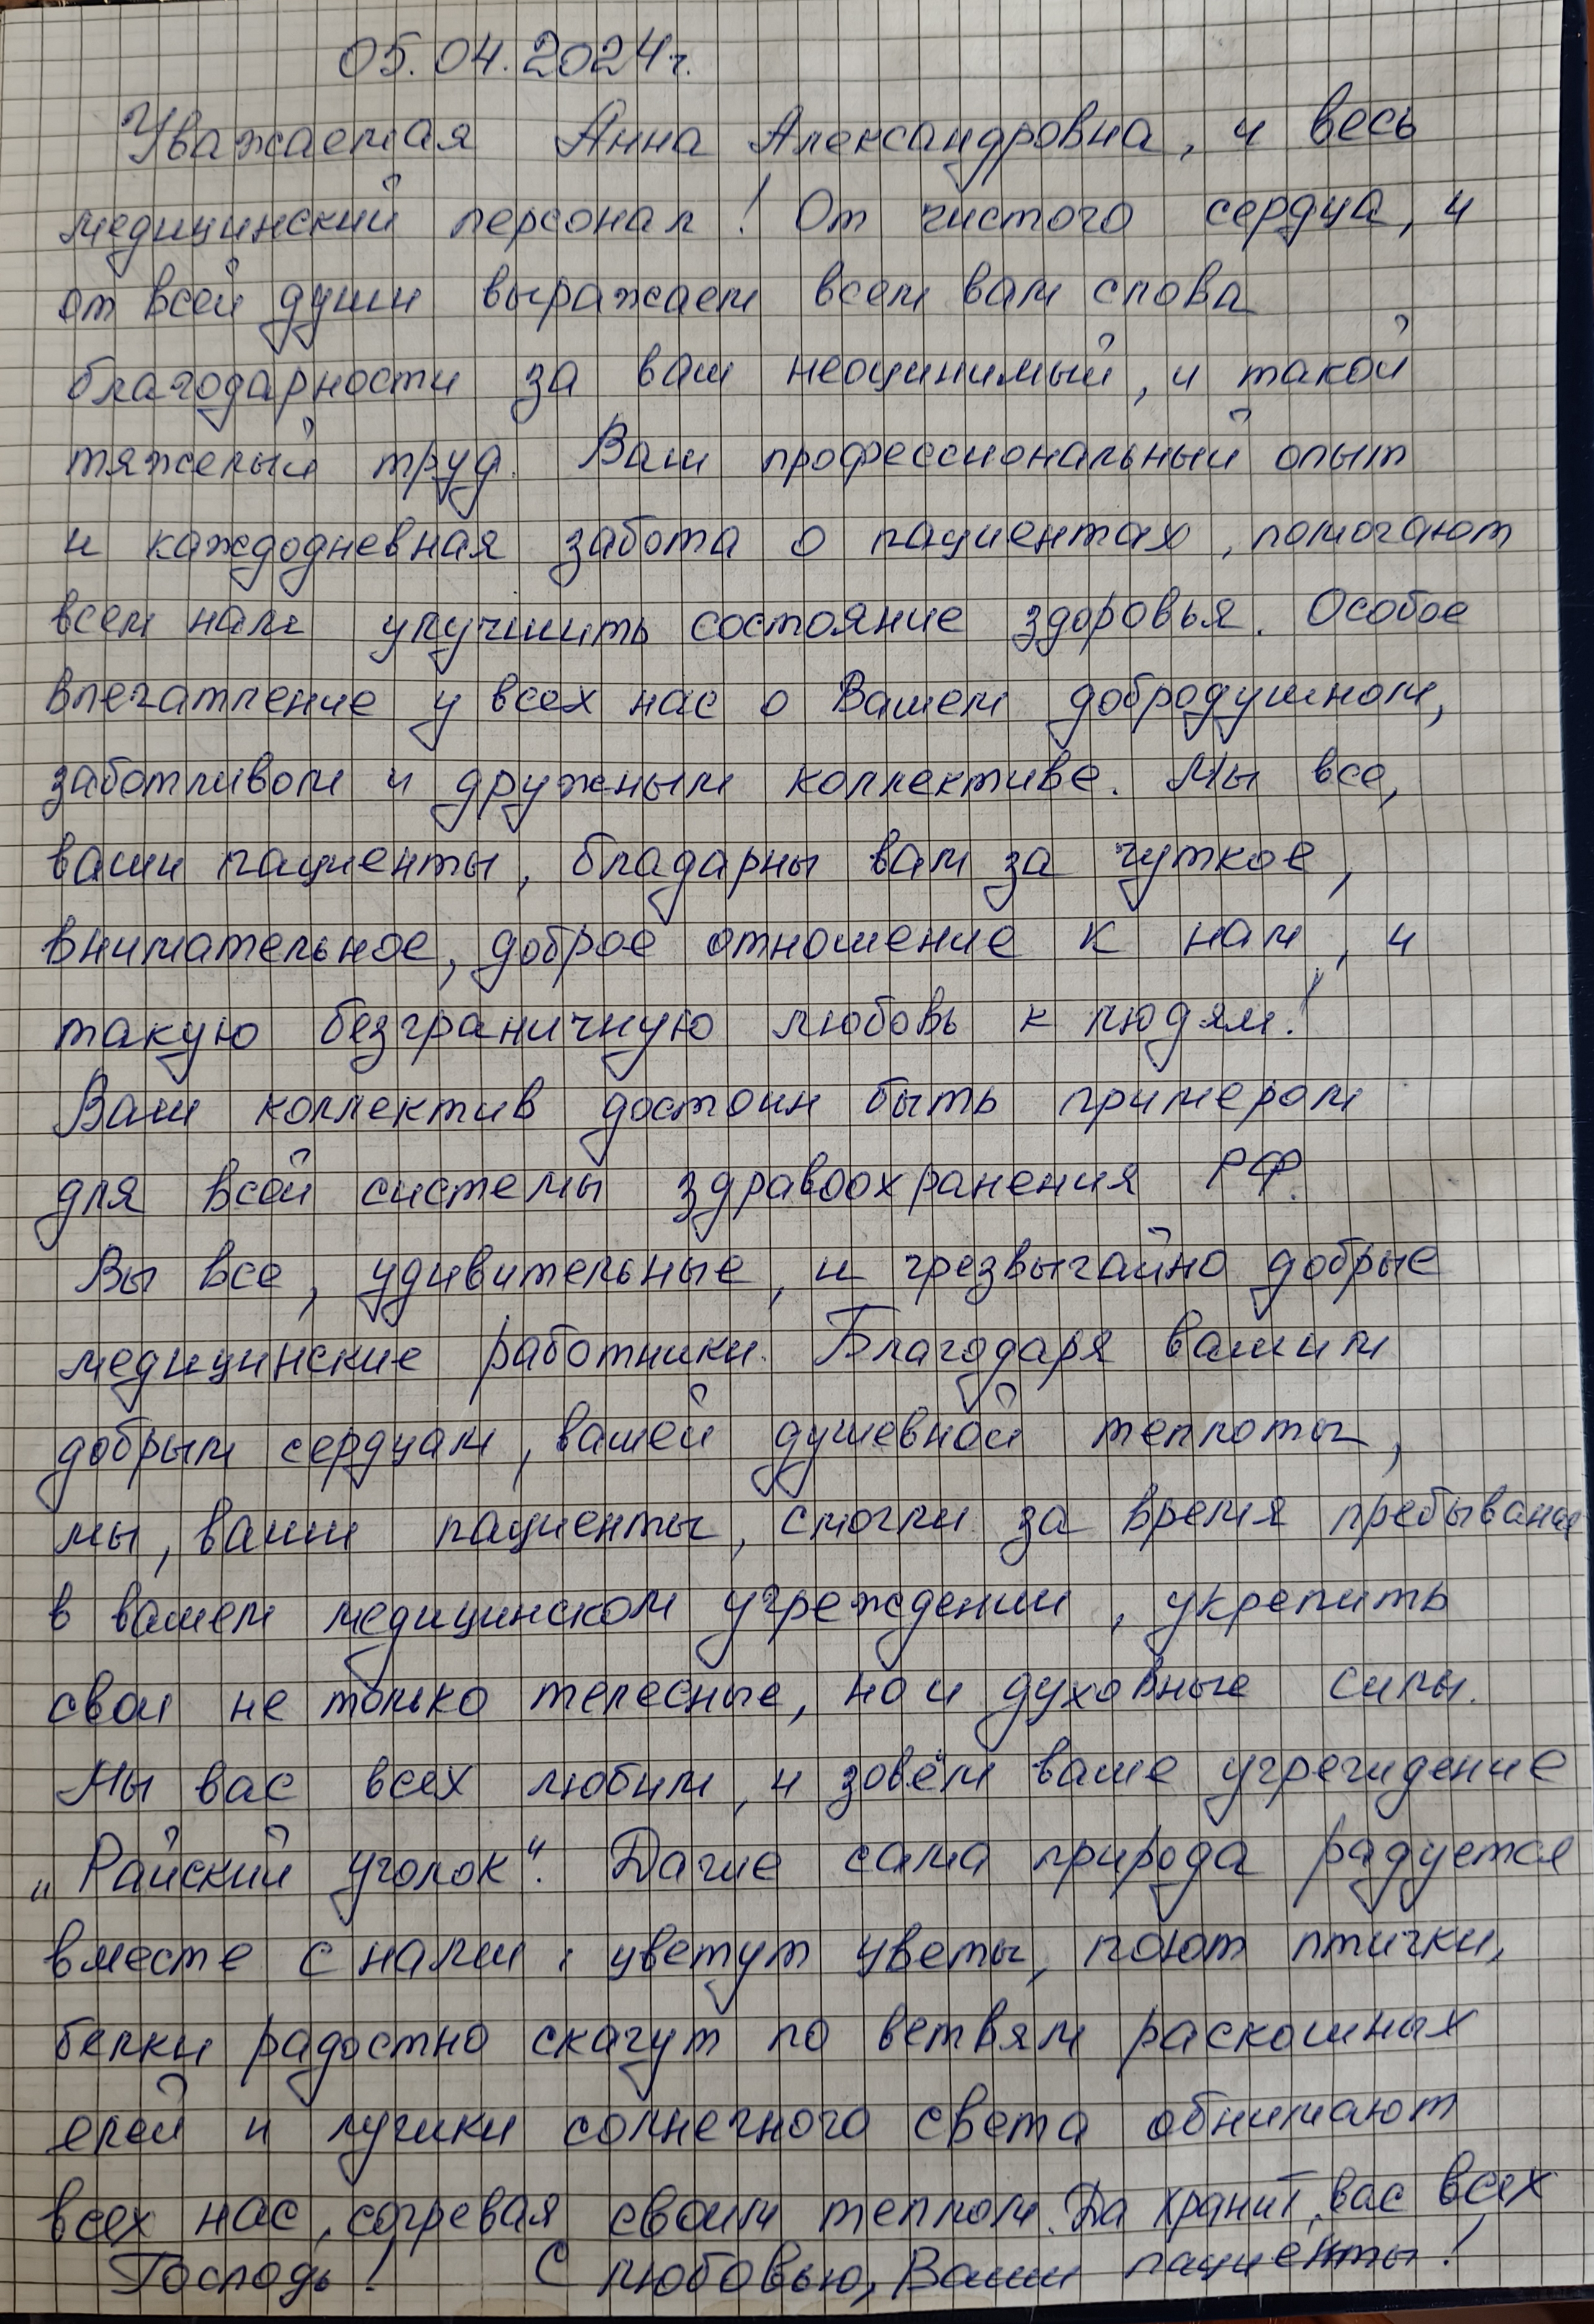 05.04.2024г.
Уважаемая Анна Александровна, и весь
медицинский персонал! От чистого сердца, и
от всей души выражаем всем вам слова
благодарности за ваш неоцинимый, и такой
тяжелый труд. Ваш профессиональный опыт
и каждодневная забота о пациентах, помогают
всем нам улучшить состояние здоровья. Особое
впечатление у всех нас о Вашем добродушном,
заботливом и дружным коллективе. Мы все,
ваши пациенты, бладарны вам за чуткое,
внимательное, доброе отношение к нам, и
такую безграничную любовь к людям!
Ваш коллектив достоин быть примером
для всей системы здравоохранения РФ.
Вы все, удивительные, и чрезвычайно добрые
медицинские работники. Благодаря вашим
добрым сердцам, вашей душевной теплоты,
мы, ваши пациенты, смогли за время пребывания
в вашем медицинском учреждении, укрепить
свои не только телесные, но и духовные силы.
Мы вас всех любим, и зовём ваше учреждение
„Райский уголок“. Даже сама природа радуется
вместе с нами: цветут цветы, поют птички,
белки радостно скачут по ветвям раскошных
елей и лучики солнечного света обнимают
всех нас, согревая своим теплом. Да хранит вас всех
Господь! С любовью, Ваши пациенты!